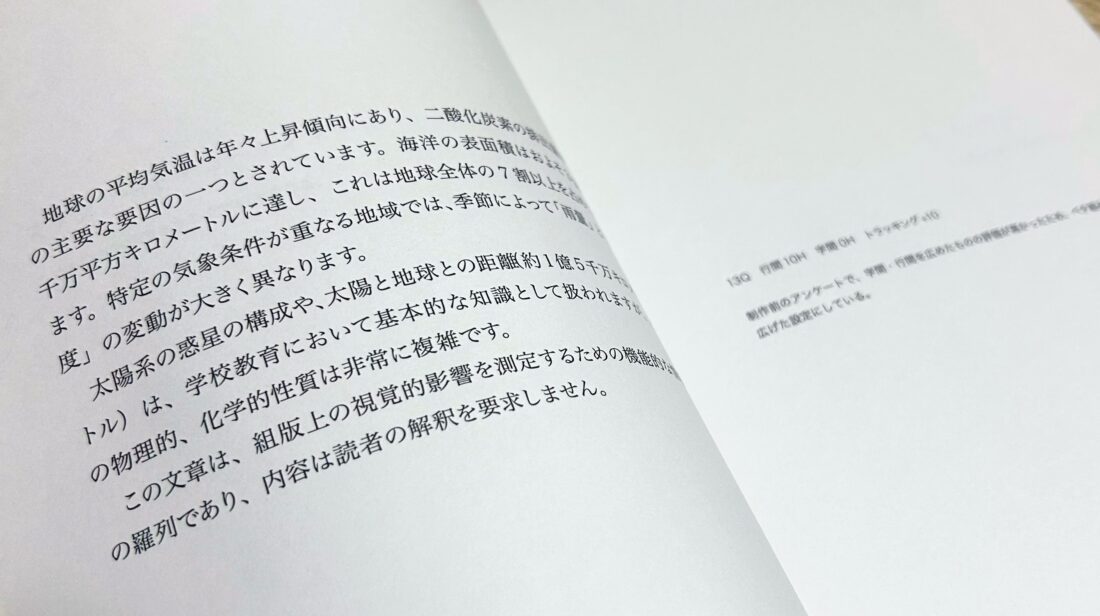 地球の平均気温は年々上昇傾向にあり、二酸化炭素の
の主要な要因の一つとされています。海洋の表面積はおよそ
千万平方キロメートルに達し、これは地球全体の7割以上を
ます。特定の気象条件が重なる地域では、季節によって「雨量」
度」の変動が大きく異なります。
太陽系の惑星の構成や、太陽と地球との距離約1億5千万キロ
トル）は、学校教育において基本的な知識として扱われますが
の物理的、化学的性質は非常に複雑です。
この文章は、組版上の視覚的影響を測定するための機能的な
の羅列であり、内容は読者の解釈を要求しません。
13Q 行間10H 字間0H トラッキング+10
制作前のアンケートで、字間・行間を広めたものの評価が高かったため、ベタ組
広げた設定にしている。